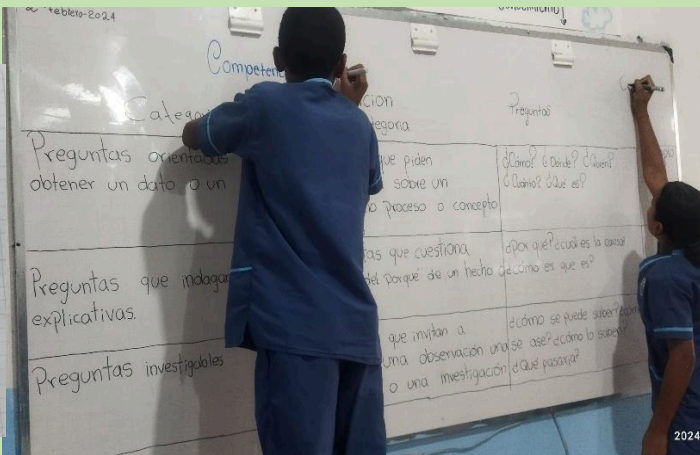 febrero-2024
Competen
Categor cion Preguntas
tegoria
Preguntas orientadas
obtener un dato o un
que piden
sobre un
o proceso o concepto
¿Como? ¿Donde? ¿Quien?
¿Cuánto? ¿Qué es?
Preguntas que indagan
explicativas.
tas que cuestiona
del porqué de un hecho
¿por qué? ¿cuál es la causa
¿cómo es que es?
Preguntas investigables
que invitan a
una observación una
o una investigación
¿cómo se puede saber?
se ase? ¿cómo lo saber
¿Qué pasaría?
2024